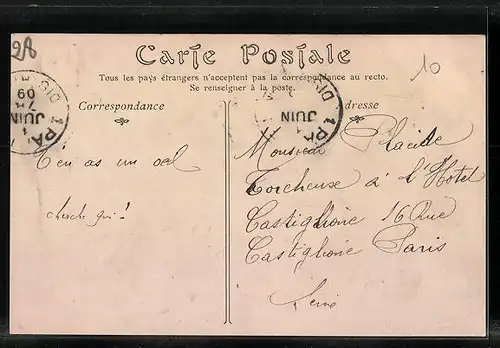 2A
10
Carte Postale
Tous les pays étrangers n'acceptent pas la correspondance au recto.
Se renseigner à la poste.
Correspondance
Adresse
DIS
09
JUIN
PA
DI
JUIN
1 PA
T'en as un œil
cherche qui!
Monsieur Placide
Torcheuse à l'Hotel
Castiglione 16 Rue
Castiglione Paris
Seine